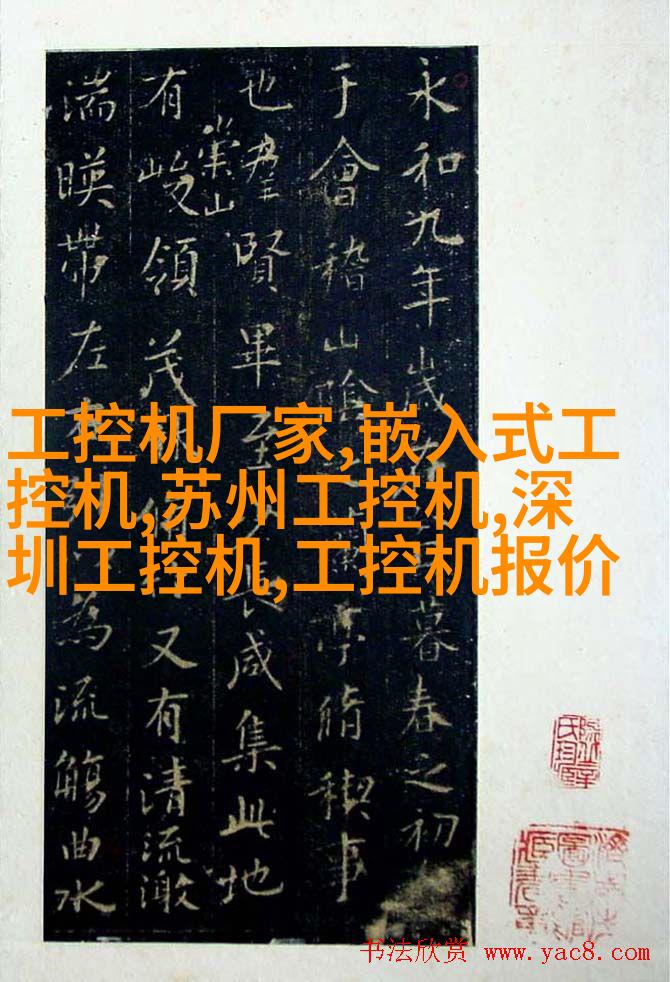 永和九年歳在暮春之初
于會稽山陰之蘭亭脩禊事
也羣賢畢至長咸集此地
有崇山峻領茂脩竹又有清流激
湍暎帶左右為流觴曲水
工控机厂家,嵌入式工
控机,苏州工控机,深
圳工控机,工控机报价
书法欣赏 www.yac8.com